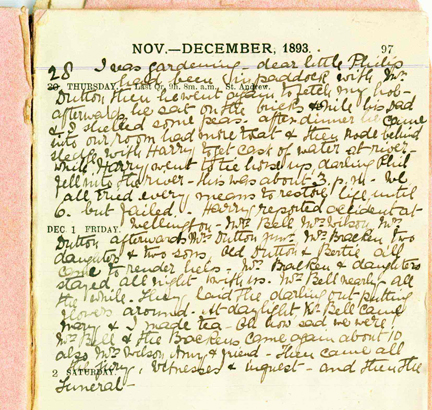 NOV.—DECEMBER, 1893. 97
28 I was gardening - dear little Philip
had been in paddock with Mr
30 THURSDAY.—Last Qr. 9h. 8m. a.m., St. Andrew.
Dutton, then he went again to fetch my hob-
afterwards he sat on the bricks while his dad
& I shelled some peas - after dinner he came
into our room had more meat & then rode behind
sledge with Harry to get cask of water at river -
while Harry went to tie horse up, darling Phil
fell into the river - this was about 3 p.m. We
all tried every means to restore life until
6 - but failed. Harry reported accident at
Wellington - Mrs Bell Mrs Wilson, Mrs
DEC 1 FRIDAY.
Dutton afterwards Mrs Dutton Junr. Mrs Bracken, two
daughters & two sons, Old Dutton & Bertie all
came to render help. Mrs Bracken & daughters
stayed all night with us. Mrs Bell nearly all
the while. They laid the darling out putting
flowers around. At daylight Mr Bell came
Mary & I made tea - Oh how sad we were!
Mr Bell & the Brackens came again about 10
also Mrs Wilson, Amy & friend - then came all
the jury, Witnesses & inquest - and then the
2 SATURDAY.
Funeral -